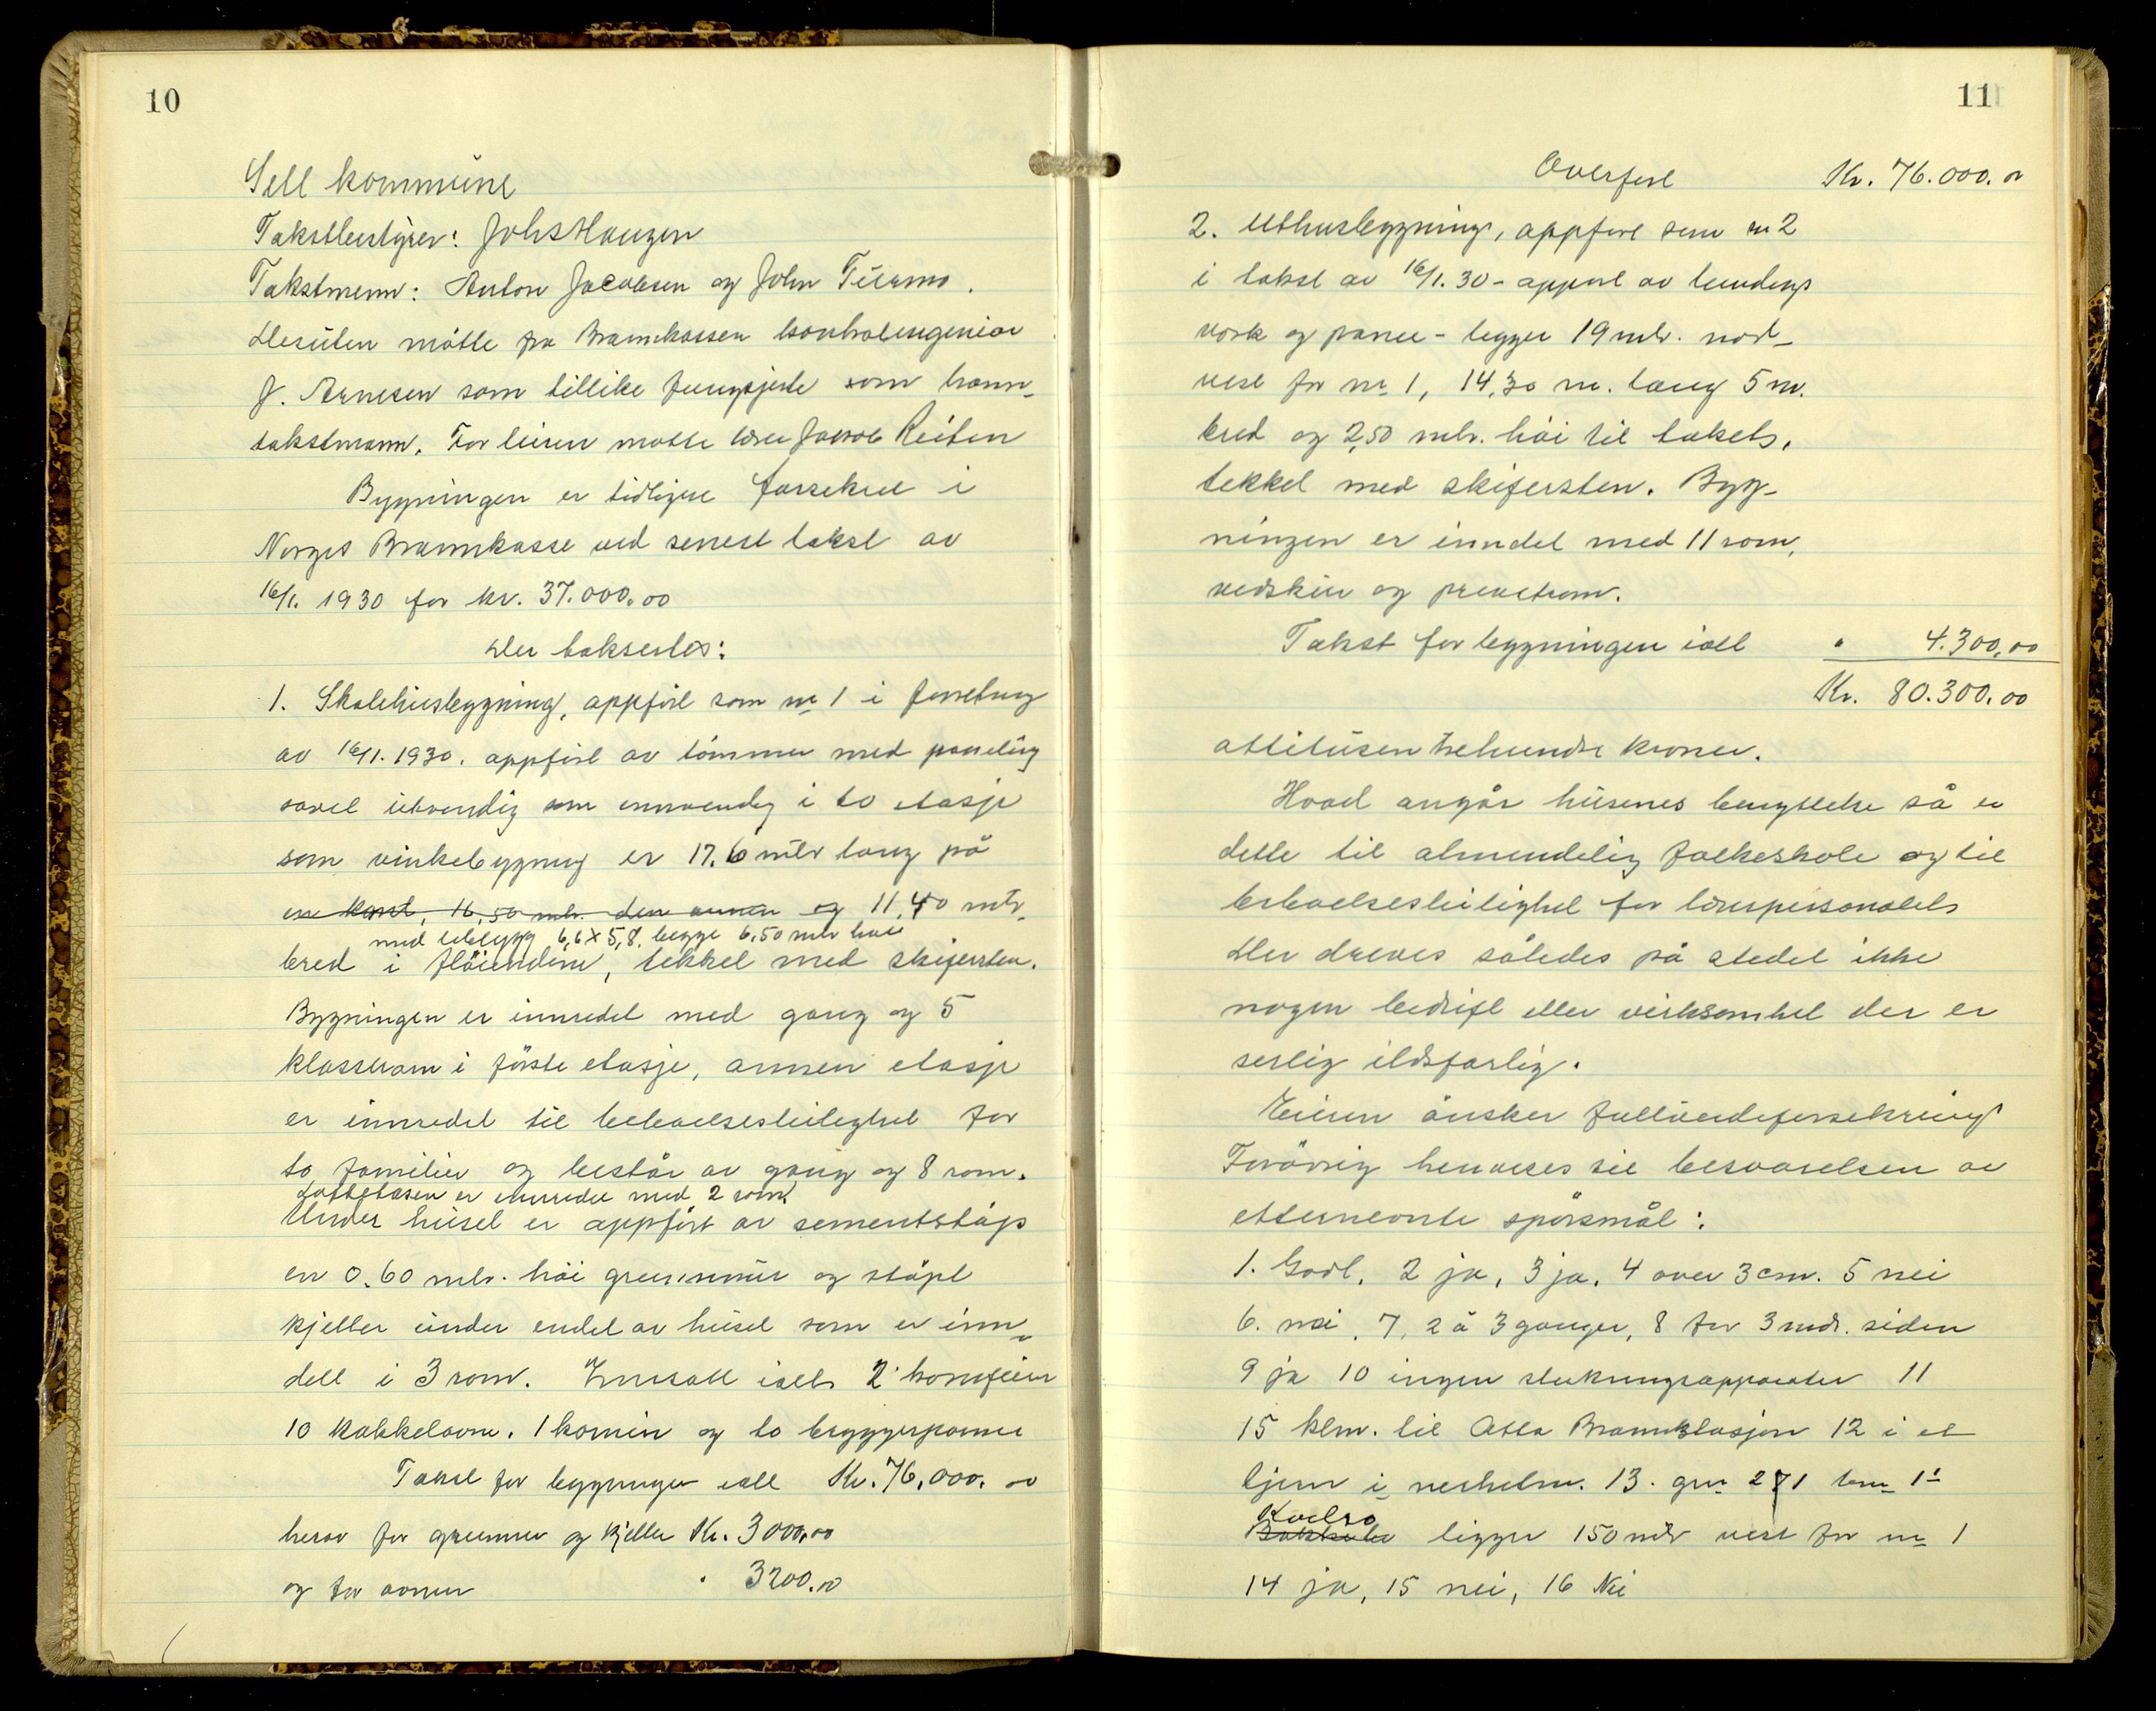 10
Sell kommune
Takstbestyrer: Johs Haugen
Takstmenn: Anton Jacobsen og John Tiurmo.
Desuten møtte fra Brannkassen kontrolingeniør
J. Arnesen som tillike fungerte som brann-
takstmann. For eieren møtte lærer Jacob Reiten
Bygningen er tidligere forsikret i
Norges Brannkasse ved senest takst av
16/1. 1930 for kr. 37.000.00
Der takseres:
1. Skolehusbygning, oppført som nr 1 i forretning
av 16/1. 1930. oppført av tömmer med paneling
såvel utvendig som innvendig i to etasje
som vinkelbygning er 17.6 mtr lang på
en kant, 16,50 mtr. den annen og 11,40 mtr
med tilbygg 6,6 x 5,8. begge 6,50 mtr høie
bred i flöiendene, tekket med skifersten.
Bygningen er innredet med gang og 5
klasserom i förste etasje, annen etasje
er innredet til beboelsesleilighet for
to familier og består av gang og 8 rom.
Loftetasen er innredet med 2 rom.
Under huset er oppført av sementstöp
en 0.60 mtr. höi grunnmur og stöpt
kjeller under endel av huset som er inn-
delt i 3 rom. Innsatt ialt 2 komfeier
10 kakkelovne. 1 kamin og to bryggepanner
Takst for bygningen ialt Kr. 76.000.00
herav for grunnmur og kjeller Kr. 3000.00
og for ovnen " 3200.00
11
Overført Kr. 76.000.00
2. Uthusbygning, oppført som nr 2
i takst av 16/1. 30 - oppført av bindings
verk og panel - ligger 19 mtr. nord-
vest for nr 1, 14,30 m. lang 5 m.
bred og 2,50 mtr. höi til takets,
tekket med skifersten. Byg-
ningen er inndelt med 11 rom,
vedskiu og privetrom.
Takst for bygningen ialt " 4.300.00
Kr. 80.300.00
åttitusen trehundre kroner.
Hvad angår husenes benyttelse så er
dette til almindelig folkeskole og til
beboelsesleilighet for lærerpersonalets
Der drives således på stedet ikke
nogen bedrift eller virksomhet der er
serlig ildsfarlig.
Eieren önsker fullverdiforsikring
Forövrig henvises til besvarelsen av
etternevnte spörsmål:
1. Godt, 2 ja, 3 ja, 4 over 3 cm. 5 nei
6. nei, 7, 2 à 3 ganger, 8 for 3 mdr. siden
9 ja 10 ingen slukningsapparater 11
15 klm. til Otta Brannstasjon 12 i et
tjern i nerheten. 13. grn 271 brn 1
Kvelro
ligger 150 mtr vest for nr 1
14 ja, 15 nei, 16 Nei